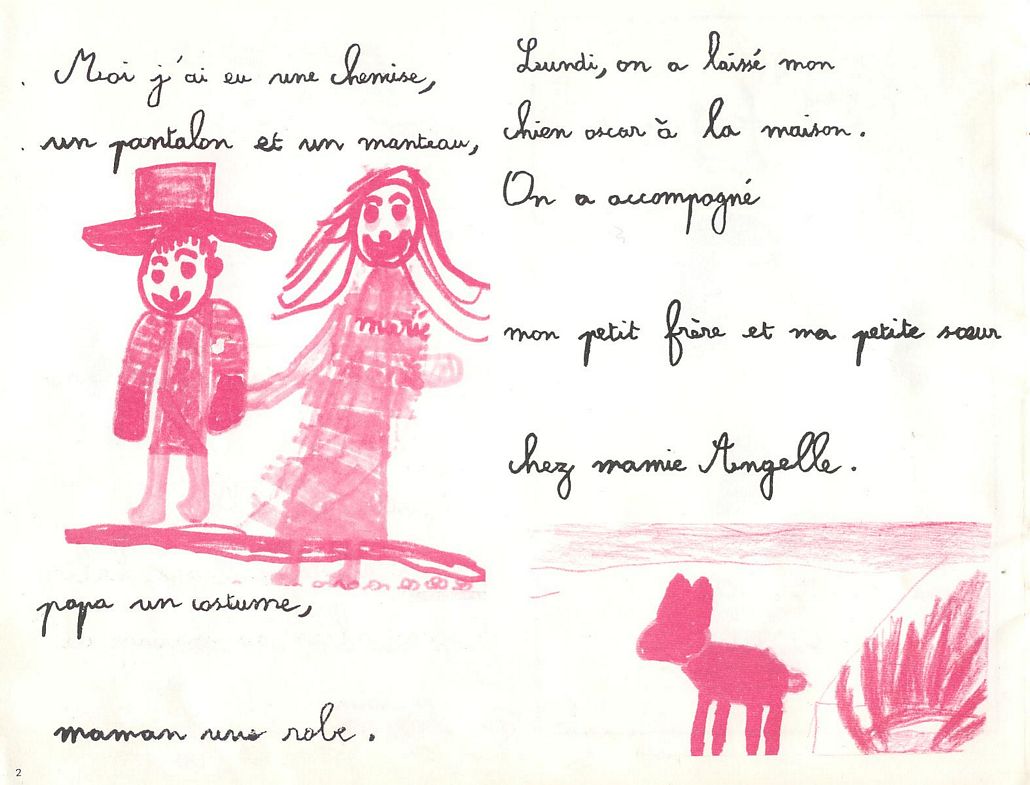 Moi j'ai eu une chemise,
un pantalon et un manteau,
marie
papa un costume,
maman une robe.
2
Lundi, on a laissé mon
chien oscar à la maison.
On a accompagné
mon petit frère et ma petite sœur
chez mamie Angelle.